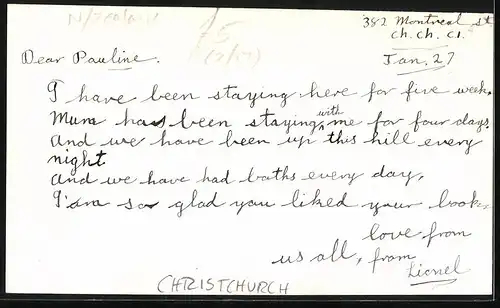 N/Zealand
382 Montreal st
ch. ch. c1.
Dear Pauline.
Jan. 27
I have been staying here for five week.
Mum has been staying with me for four days.
and we have been up this hill every
night
and we have had baths every day,
I'am so glad you liked your book.
love from
us all, from
Lionel
CHRISTCHURCH